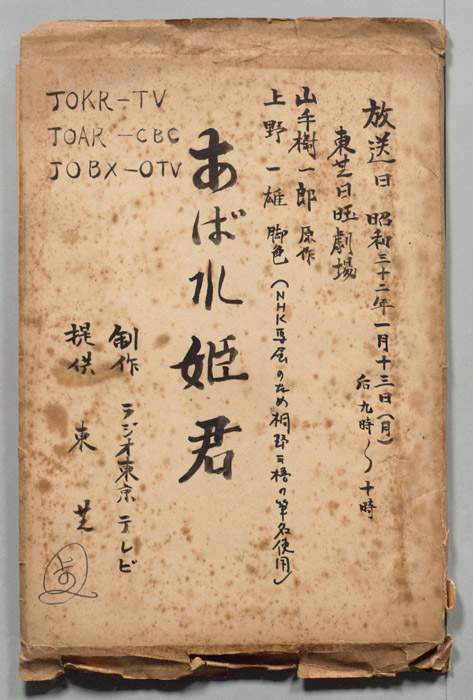 放送日 昭和三十二年一月十三日(月)
后九時〜十時
東芝日旺劇場
山手樹一郎 原作
上野一雄 脚色 (NHK専属のため桐野三梧の筆名使用)
あばれ姫君
制作 ラジオ東京テレビ
提供 東芝
JOKR-TV
JOAR-CBC
JOBX-OTV